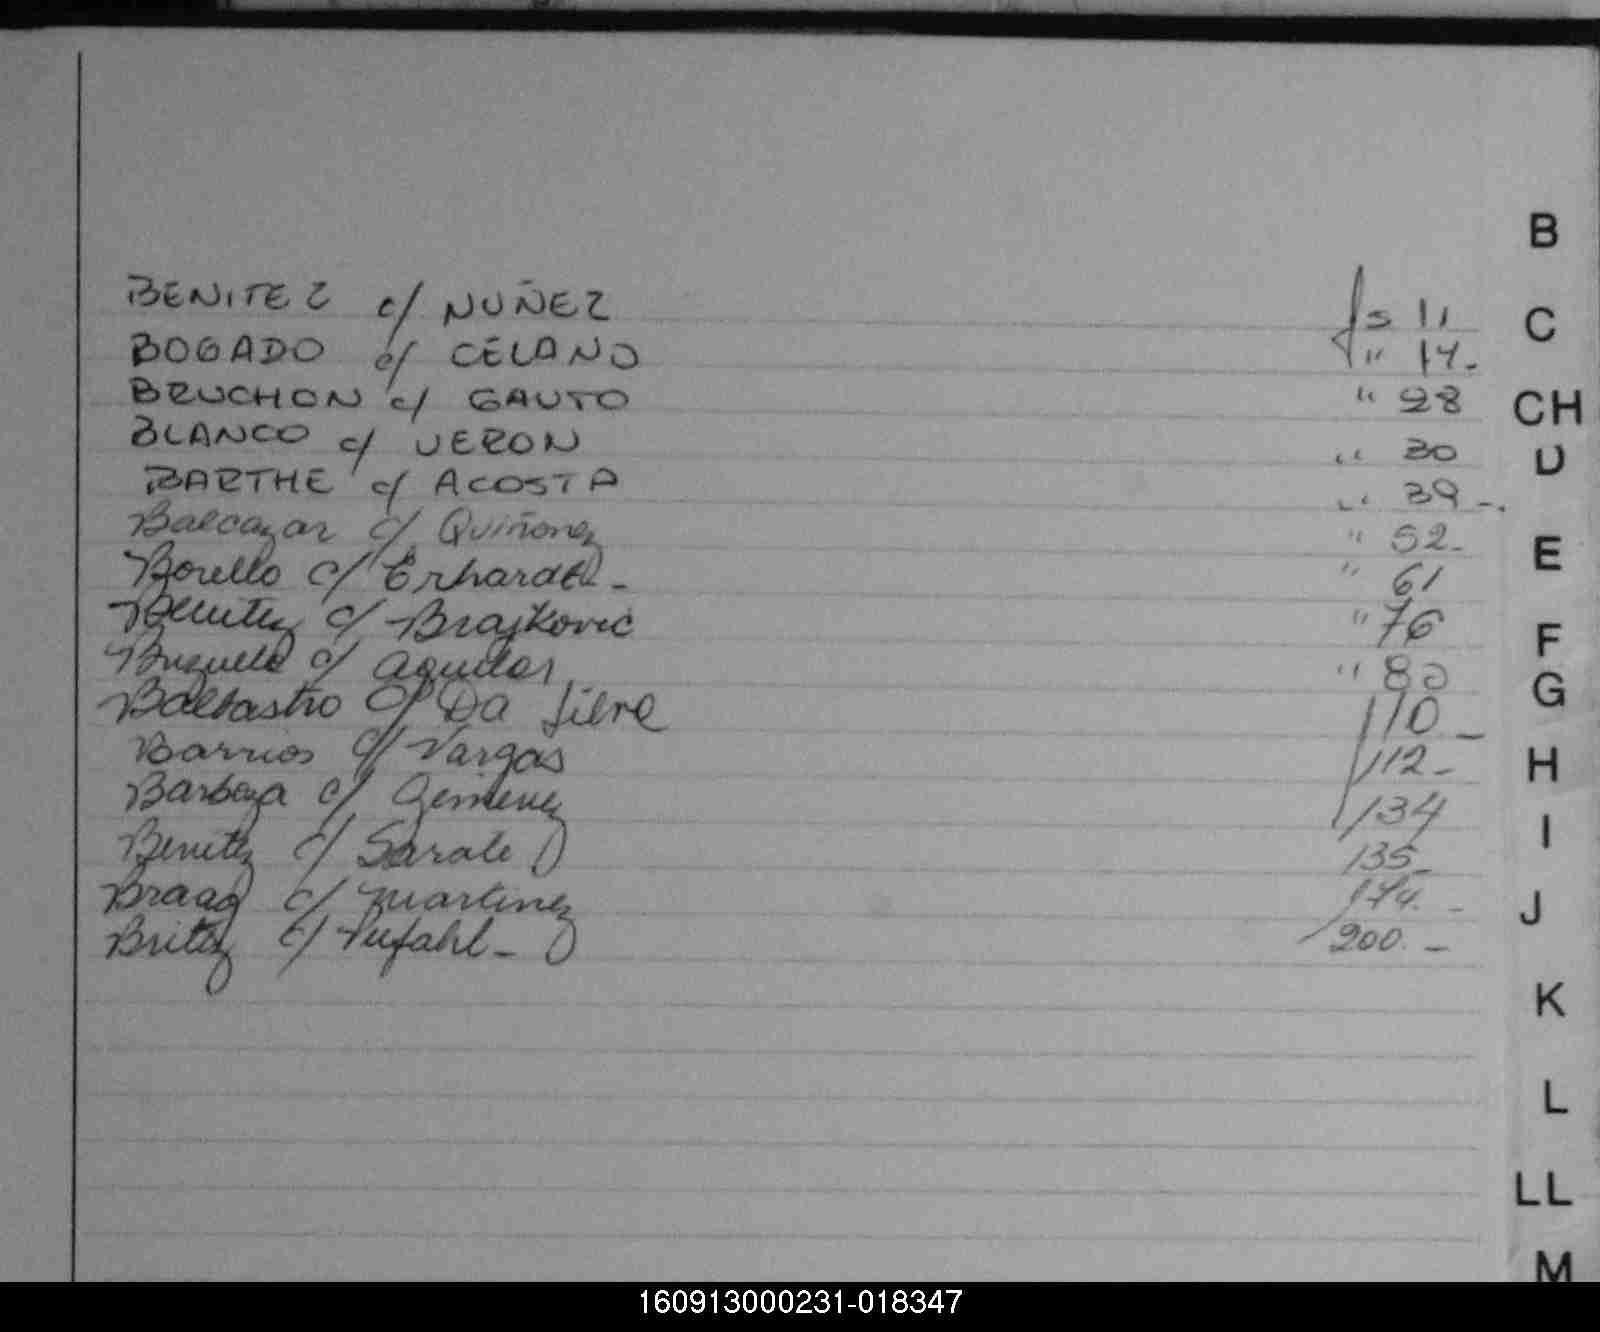 BENITEZ c/ NUÑEZ fs 11
BOGADO c/ CELANO " 14.
BRUCHON c/ GAUTO " 28
BLANCO c/ VERON " 30
BARTHE c/ ACOSTA " 39 -.
Balcazar c/ Quiñonez " 52.
Borello c/ Erhardt - " 61
Benitez c/ Brajkovic " 76
c/ Aguilar " 80
Balbastro c/ Da Silva 110 -
Barrios c/ Vargas 112 -
Barboza c/ Gimenez 134
Benitez c/ Sarate 135 -
Braag c/ Martinez
Britez c/ Pufahl - 200. -
B
C
CH
D
E
F
G
H
I
J
K
L
LL
M
160913000231-018347